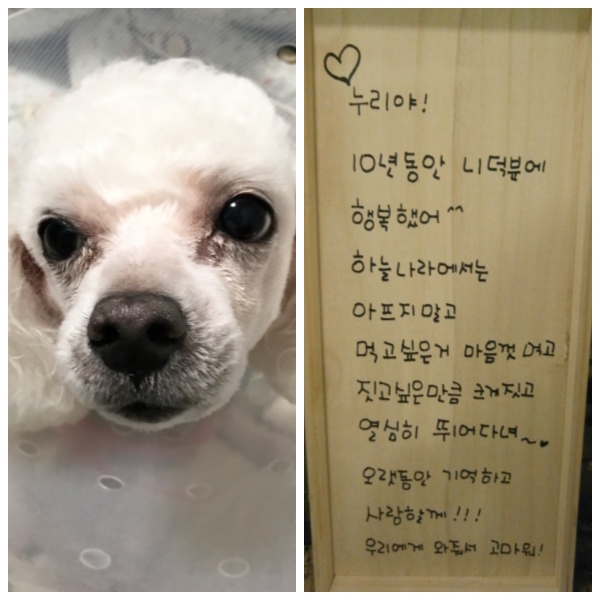 누리야!
10년동안 니덕분에
행복했어^^
하늘나라에서는
아프지말고
먹고싶은거 마음껏 먹고
짖고싶은만큼 크게짖고
열심히 뛰어다녀~
오랫동안 기억하고
사랑할께!!!
우리에게 와줘서 고마워!